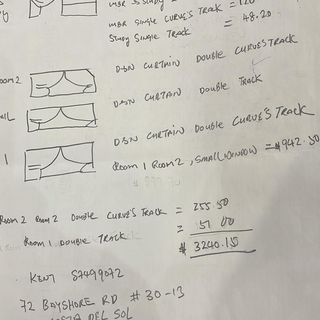 MBR SINGLE CURVE'S TRACK = 120
STUDY SINGLE TRACK = 48.20
ROOM 2 D&N CURTAIN DOUBLE CURVE'S TRACK
D&N CURTAIN DOUBLE TRACK
D&N CURTAIN DOUBLE CURVE'S TRACK
1 ROOM 1 ROOM 2, SMALL WINDOW = $942.50
ROOM 2 ROOM 2 DOUBLE CURVE'S TRACK = 255.50
ROOM 1 DOUBLE TRACK = 51.00
$ 3240.15
KEN 87499072
72 BAYSHORE RD # 30-13
COSTA DEL SOL